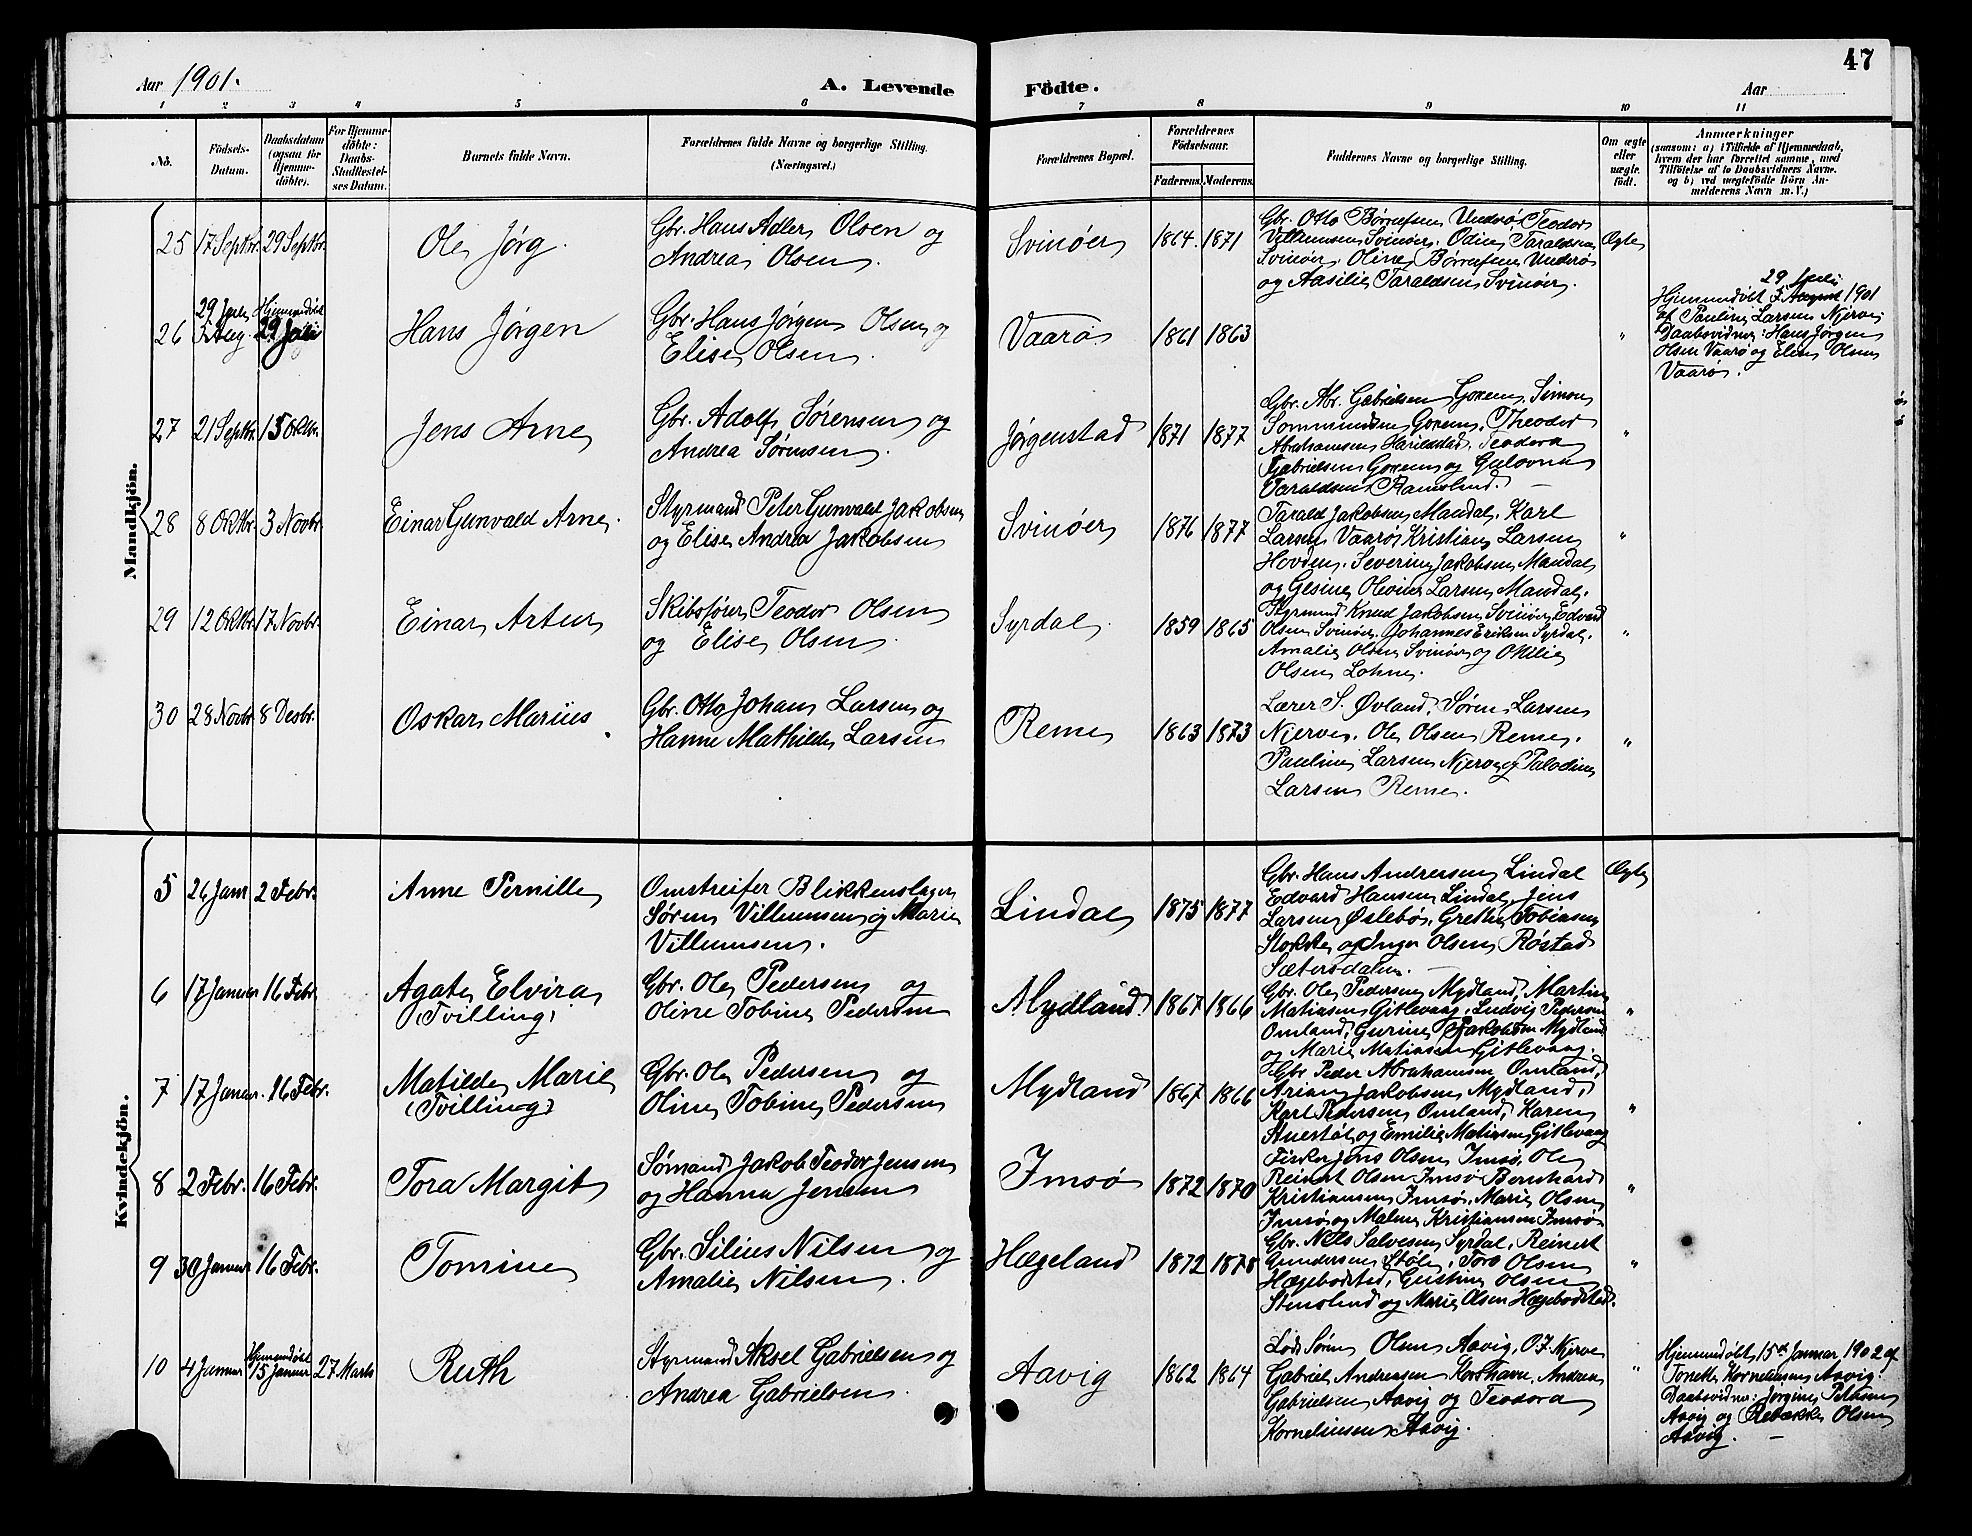 47
Aar 1901.
A. Levende Födte.
Aar
1 2 3 4 5 6 7 8 9 10 11
No.
Födsels-
Datum.
Daabsdatum
(ogsaa for
Hjemme-
döbte).
For Hjemme-
döbte:
Daabs-
Stadfæstel-
ses Datum.
Barnets fulde Navn.
Forældrenes fulde Navne og borgerlige Stilling.
(Næringsvei.)
Forældrenes Bopæl.
Forældrenes
Födselsaar.
Faderens. Moderens.
Faddernes Navne og borgerlige Stilling.
Om ægte
eller
uægte
födt.
Anmærkninger
(saasom: a) i Tilfælde af Hjemmedaab,
hvem der har forrettet samme, med
Tilföielse af to Daabsvidners Navne.
og b) ved uægtefödte Börn An-
melderens Navn m. V.)
Mandkjön.
25 17 Septbr. 29 Septbr. Ole Jørg.
Gbr. Hans Adler Olsen og
Andrea Olsen.
Svinøer 1864. 1871
Gbr. Otto Børresen Underø, Teodor
Villumsen Svinøer. Odin Taraldsen
Svinøer. Oline Børresen Underø
og Aasilie Taraldsen Svinøer.
Ægte
26 29 Juli 5 Aug. Hjemmedøbt 29 Juli Hans Jørgen
Gbr. Hans Jørgen Olsen og
Elise Olsen.
Vaarø 1861 1863
"
29 Juli
Hjemmedøbt 5 August 1901
af Pauline Larsen Njerve.
Daabsvidner: Hans Jørgen
Olsen Vaarø og Elise Olsen
Vaarø.
27 21 Septbr. 13 Oktbr. Jens Arne
Gbr. Adolf Sørensen og
Andrea Sørensen.
Jørgenstad 1871 1877
Gbr. Abr. Gabrielsen Simon
Theodor
Abrahamsen Harildstad, Teodora
Gabrielsen og
Taraldsen Ramslund.
"
28 8 Oktbr. 3 Novbr. Einar Gunvald Arne.
Styrmand Peter Gunvald Jakobsen
og Elise Andrea Jakobsen
Svinøer 1876 1877
Tarald Jakobsen Mandal, Karl
Larsen Vaarø, Kristine Larsen
Hovden. Severine Jakobsen Mandal
og Gesine Olevine Larsen Mandal.
"
29 12 Oktbr. 17 Novbr. Einar Artur
Skibsfører Teodor Olsen
og Elise Olsen.
Syrdal. 1859 1865
Styrmand Knud Jakobsen Svinøer, Edvard
Olsen Svinøer. Johannes Eriksen Syrdal.
Amalie Olsen Svinøer og Otilie
Olsen Lohne.
"
30 28 Novbr. 8 Desbr. Oskar Marius.
Gbr. Otto Johan Larsen og
Hanne Mathilde Larsen
Reme 1863 1873
Lærer S. Øvland. Søren Larsen
Njerve. Ole Olsen Reme.
Pauline Larsen Njerve og Paladine
Larsen Reme.
"
Kvindekjön.
5 26 Jan 2 Febr. Anne Pernille
Omstreifer Blikkenslager
Søren Villumsen og Marie
Villumsen.
Lindal 1875 1877
Gbr. Hans Andreasen Lindal
Edvard Hansen Lindal, Jens
Larsen Øslebø. Grethe Tobiasen
Stokke og Inger Olsen Røstad
Sætersdalen.
Ægte
6 17 Januar 16 Febr. Agate Elvira
(Tvilling)
Gbr. Ole Pedersen og
Oline Tobine Pedersen
Mydland 1867 1866
Gbr. Ole Pedersen Mydland, Martin
Matiasen Gitlevaag. Ludvig Pedersen
Omland, Gurine Jakobsen Mydland
og Marie Matiasen Gitlevaag.
"
7 17 Januar. 16 Febr. Matilde Marie
(Tvilling)
Gbr. Ole Pedersen og
Oline Tobine Pedersen
Mydland 1867 1866
Gbr. Peder Abrahamsen Omland,
Arian Jakobsen Mydland,
Karl Pedersen Omland, Karen
Stuestøl og Emilie Matiasen Gitlevaag
"
8 2 Febr. 16 Febr. Tora Margit
Sømand Jakob Teodor Jensen
og Hanna Jensen
Imsø 1872 1870
Fisker Jens Olsen Imsø, Ole
Reinert Olsen Imsø Bernhard
Kristiansen Imsø, Marie Olsen
Imsø og Malene Kristiansen Imsø
"
9 30 Januar 16 Febr. Tomine
Gbr. Silius Nilsen og
Amalie Nilsen.
Hægeland 1872 1878
Gbr. Nils Salvesen Syrdal, Reinert
Gundersen Støle, Tore Olsen
Hægebostad, Gustine Olsen
Stenslund og Marie Olsen Hægebostad.
"
10 4 Januar Hjemmedøbt 15 Januar 27 Marts Ruth
Styrmand Aksel Gabrielsen og
Andrea Gabrielsen.
Aavig 1862 1864
Lods Søren Olsen Aavig, O. J. Njerve
Gabriel Andreasen Korshavn, Andrea
Gabrielsen Aavig og Teodora
Korneliusen Aavig.
"
Hjemmedøbt 15de Januar 1902 af
Tonette Korneliusen Aavig.
Daabsvidner: Jørgine Petersen
Aavig og Rebekka Olsen
Aavig.